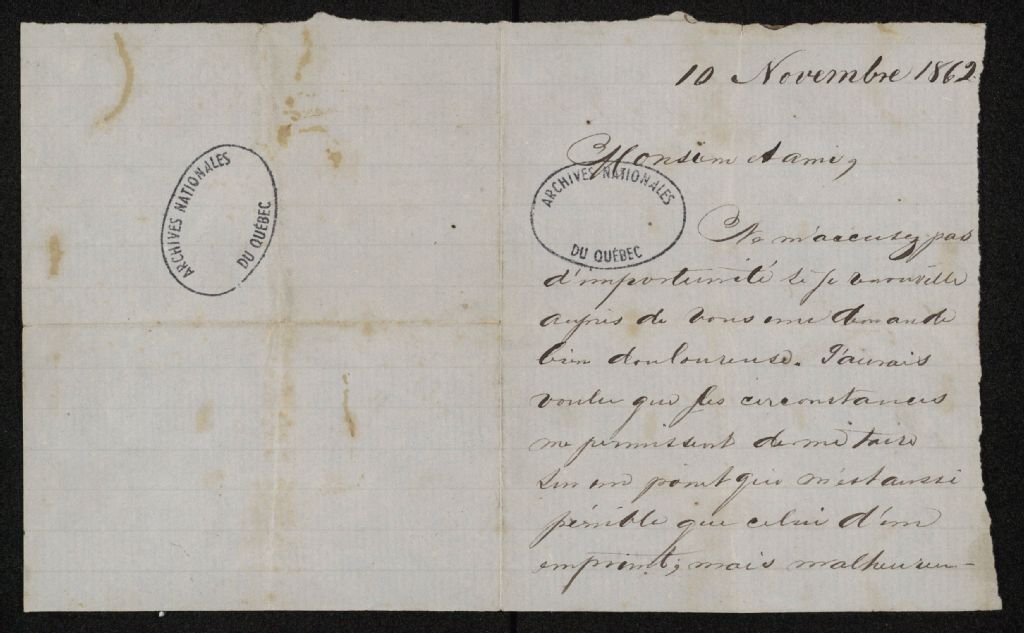 ARCHIVES NATIONALES
DU QUÉBEC
10 Novembre 1862
Monsieur & ami,
ARCHIVES NATIONALES
DU QUÉBEC
Ne m'accusez pas
d'importunité si je renouvelle
auprès de vous une demande
bien douloureuse. J'aurais
voulu que les circonstances
me permissent de me taire
sur un point qui m'est aussi
pénible que celui d'un
emprunt; mais malheureu-